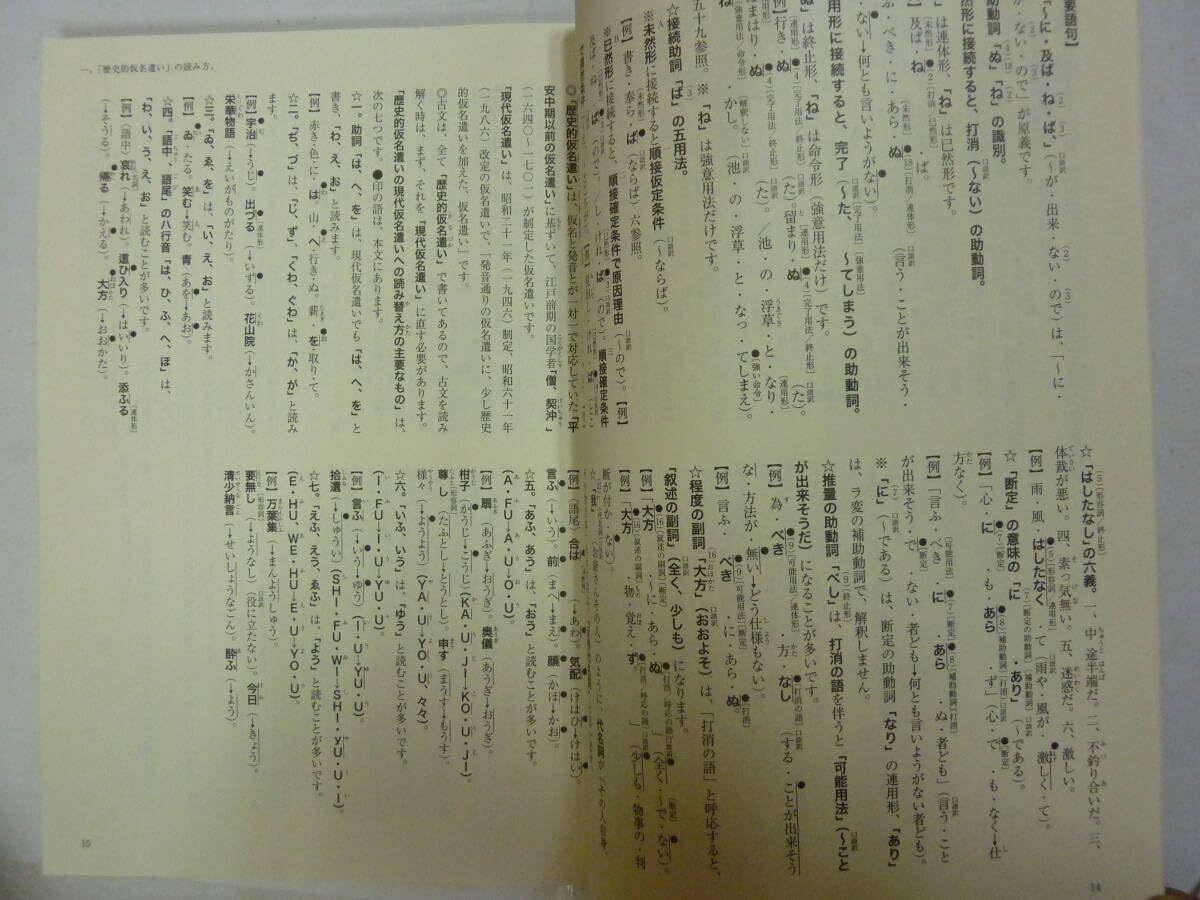 要語句】
「〜に・及ば・ね・ば。」（〜が・出来・ない・ので）は、「〜に・
・ない・ので」が原義です。
助動詞「ぬ」「ね」の識別。
然形に接続すると、打消（〜ない）の助動詞。
は連体形、「ね」は已然形です。
】及ば・ね・ば。
ふ・べき・に・あら・ぬ。（言う・ことが出来そう・
・ない→何とも言いようがない）。
用形に接続すると、完了（〜た、〜てしまう）の助動詞。
ぬ」は終止形、「ね」は命令形（強意用法だけ）です。
例】行き・ぬ（た）。留まり・ぬ（た）。
まはり・ぬ（た）。／池・の・浮草・と・なり・
ね・かし。（池・の・浮草・と・なっ・てしまえ）。
五十九参照。※「ね」は強意用法だけです。
☆接続助詞「ば」の五用法。
※未然形に接続すると順接仮定条件（〜ならば）。
【例】書き・奉ら・ば（ならば）六参照。
※已然形に接続すると、順接確定条件で原因理由（〜ので）。【例】
☆「はしたなし」の六義。一、中途半端だ。二、不釣り合いだ。三、
体裁が悪い。四、素っ気無い。五、迷惑だ。六、激しい。
【例】雨・風・はしたなく・て（雨や・風が・激しく・て）。
☆「断定」の意味の「に・あり」（〜である）。
【例】「心・に・も・あら・ず」（心・で・も・なく→仕
方なく）。
【例】「言ふ・べき・に・あら・ぬ・者ども」（言う・こと
が出来そう・で・ない・者ども→何とも言いようがない者ども）。
※「に」（〜である）は、断定の助動詞「なり」の連用形、「あり」
は、ラ変の補助動詞で、解釈しません。
☆推量の助動詞「べし」は、打消の語を伴うと「可能用法」（〜こと
が出来そうだ）になることが多いです。
【例】為・べき・方・なし（する・ことが出来そう
な・方法が・無い→どう仕様もない）。
【例】言ふ・べき・に・あら・ぬ。
☆程度の副詞「大方」（おおよそ）は、「打消の語」と呼応すると、
「叙述の副詞」（全く、少しも）になります。
【例】「大方・〜に・あら・ぬ」（全く・〜で・ない）。
【例】「大方・物・覚え・ず。」（少しも・物事の・判
断が付か・ない）。
14
一、「歴史的仮名遣い」の読み方。
◎「歴史的仮名遣い」は、仮名と発音とが一対一で対応していた「平
安中期以前の仮名遣い」に基ずいて、江戸前期の国学者「僧、契沖」
（一六四〇〜一七〇一）が制定した仮名遣いです。
「現代仮名遣い」は、昭和二十一年（一九四六）制定、昭和六十一年
（一九八六）改定の仮名遣いで、「発音通りの仮名遣いに、少し歴史
的仮名遣いを加えた、仮名遣い」です。
◎古文は、全て「歴史的仮名遣い」で書いてあるので、古文を読み
解く時は、まず、それを「現代仮名遣い」に直す必要があります。
「歴史的仮名遣いの現代仮名遣いへの読み替え方の主要なもの」は、
次の七つです。●印の語は、本文にあります。
☆一。助詞「は、へ、を」は、現代仮名遣いでも「は、へ、を」と
書き、「わ、え、お」と読みます。
【例】赤き・色・に・は。山・へ・行き・ぬ。薪・を・取り・て。
☆二。「ぢ、づ」は、「じ、ず」、「くわ、ぐわ」は、「か、が」と読み
ます。
【例】宇治（→うじ）。出づる（→いずる）。花山院（→かさんいん）。
栄華物語（→えいがものがたり）。
☆三。「ゐ、ゑ、を」は、「い、え、お」と読みます。
【例】ゐ・たる。笑む→笑む。青（あを→あお）。
☆四。「語中、語尾」のハ行音「は、ひ、ふ、へ、ほ」は、
「わ、い、う、え、お」と読むことが多いです。
【例】（語中）哀れ（→あわれ）。這ひ入り（→はいいり）。添ふる
（→そうる）。帰る（→かえる）。大方（→おおかた）。
【例】（語尾）合は（→あわ）。気配（けはひ→けはい）
言ふ（→いう）。前（まへ→まえ）。顔（かほ→かお）。
☆五。「あふ、あう」は、「おう」と読むことが多いです。
（A・FU→A・U→O・U）。
【例】扇（あふぎ→おうぎ）。奥儀（あうぎ→おうぎ）。
柑子（かうじ→こうじ）（KA・U・JI→KO・U・JI）。
尊し（たふとし→とうとし）。申す（まうす→もうす）。
様々（→ようよう）（YA・U→YO・U、々々）。
☆六。「いふ、いう」は、「ゆう」と読むことが多いです。
（I・FU→I・U→YU・U）。
【例】言ふ（→いう→ゆう）（I・U→YU・U）。
拾遺（→しゅうい）（SHI・FU・WI→SHI・yU・U・I）。
☆七。「えふ、えう、ゑふ」は、「よう」と読むことが多いです。
（E・HU、WE・HU→E・U→YO・U）。
【例】万葉集（→まんようしゅう）。
要無し（→ようなし）（役に立たない）。今日（→きょう）。
清少納言（→せいしょうなごん）。酔ふ（→よう）。
15